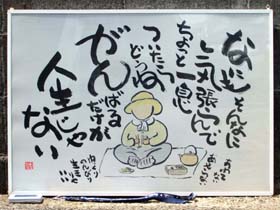 なにそんなに
気張らんで
ちょっと一息
ついたら
どうね
がんばる
だけが
人生じゃ
ない
ゆっくり
のんびり